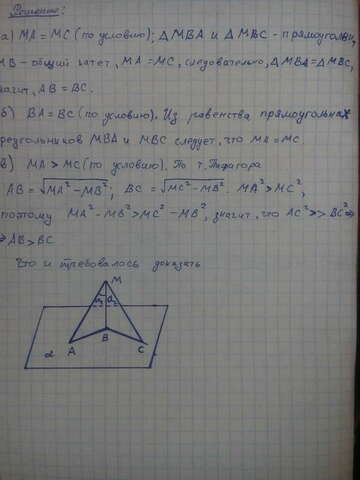 Решение:
а) MA = MC (по условию); △MBA и △MBC - прямоугольн
MB - общий катет, MA = MC, следовательно, △MBA = △MBC,
начит, AB = BC.
б) BA = BC (по условию). Из равенства прямоугольных
реугольников MBA и MBC следует, что MA = MC.
в) MA > MC (по условию). По т. Пифагора
AB = √MA² − MB²; BC = √MC² − MB². MA² > MC²,
поэтому MA² − MB² > MC² − MB², значит, что AC² >> BC² ⇒
⇒ AB > BC
Что и требовалось доказать
M
B
A C
α